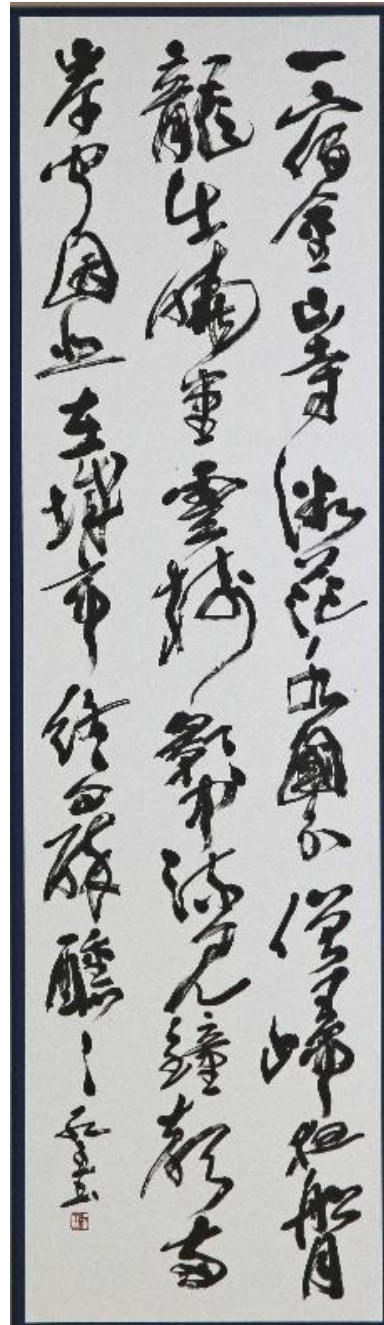 一宿金山寺微茫水國分僧歸夜船月
龍出曉堂雲樹影中流見鐘聲兩
岸聞因悲在城市終日醉醺〻